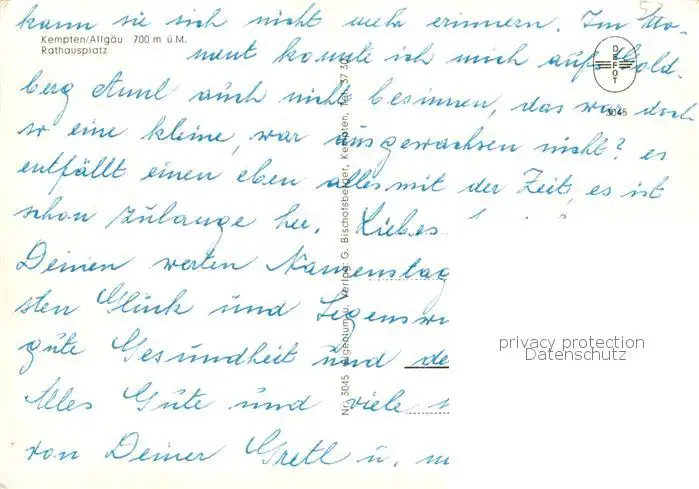 kann sie sich nicht mehr erinnern. Im Mo-
Kempten/Allgäu 700 m ü M.
Rathausplatz
ment konnte ich mich aufs Gold-
berg Annl auch nicht besinnen, das war doch
so eine kleine, war ausgewachsen nicht? es
entfällt einen eben alles mit der Zeit, es ist
schon zulange her. Liebes
Deinen werten Namenstag
sten Glück und Segenswü
gute Gesundheit und de
Alles Gute und viele
von Deiner Gretl u.
DEFOT
3045
Nr. 3045 Eigentum u. Verlag: G. Bischofsberger, Kempten, Tel. 37 30
privacy protection
Datenschutz